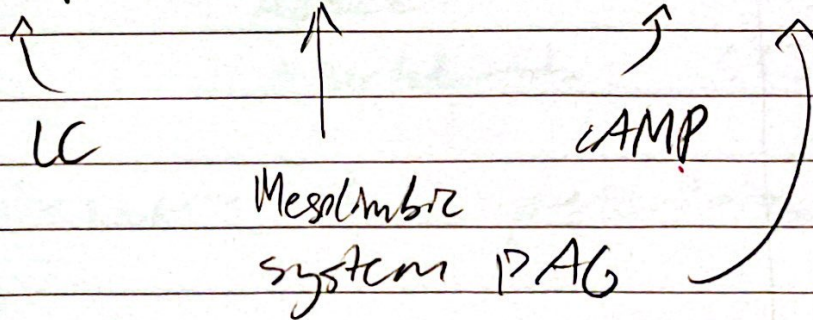 LC
cAMP
Mesolimbic
system PAG